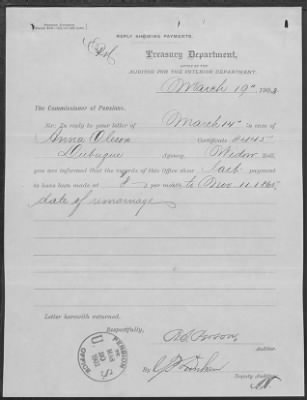 REPLY SHOWING PAYMENTS.
Treasury Department,
OFFICE OF THE
AUDITOR FOR THE INTERIOR DEPARTMENT.
March 19th, 190
The Commissioner of Pensions.
Sir: In reply to your letter of March 14th in case of
Anna Certificate
Dubuque Agency, Widow Roll,
you are informed that the records of this Office show last payment
to have been made at $8 per month to Nov 11 1865
date of remarriage
Letter herewith returned.
Respectfully,
Auditor.
By
Deputy Auditor.
U. S. PENSION OFFICE
MAR 20